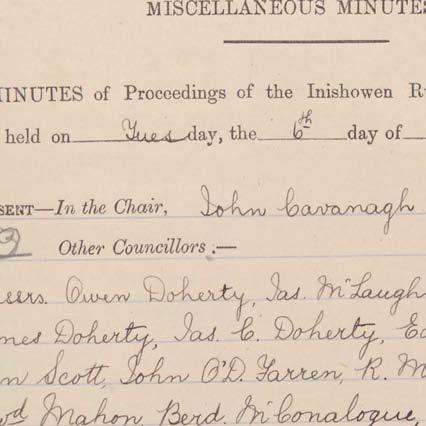 MISCELLANEOUS MINUTES
MINUTES of Proceedings of the Inishowen R
held on Tuesday, the 6th day of
SENT—In the Chair, John Cavanagh
Other Councillors :—
Owen Doherty, Jas. McLaugh
mes Doherty, Jas. C. Doherty, Ed
n Scott, John O'D. Farren, R. M
wd Mahon, Berd. McConalogue,